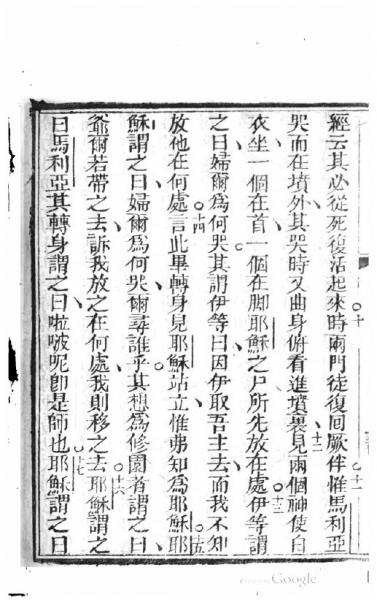 經云其必從死復活起來〇十時兩門徒復囘厥伴〇十一惟馬利亞
哭而在墳外其哭時又曲身俯看進墳裏〇十二見兩個神使白
衣坐一個在首一個在脚耶穌之尸所先放在處〇十三伊等謂
之曰婦爾為何哭其謂伊等曰因伊取吾主去而我不知
放他在何處〇十四言此畢轉身見耶穌站立惟弗知為耶穌〇十五耶
穌謂之曰婦爾為何哭爾尋誰乎其想為修園者謂之曰
爺爾若帶之去訴我放之在何處我則移之去〇十六耶穌謂之
曰馬利亞其轉身謂之曰啦啵呢卽是師也〇十七耶穌謂之曰
Google